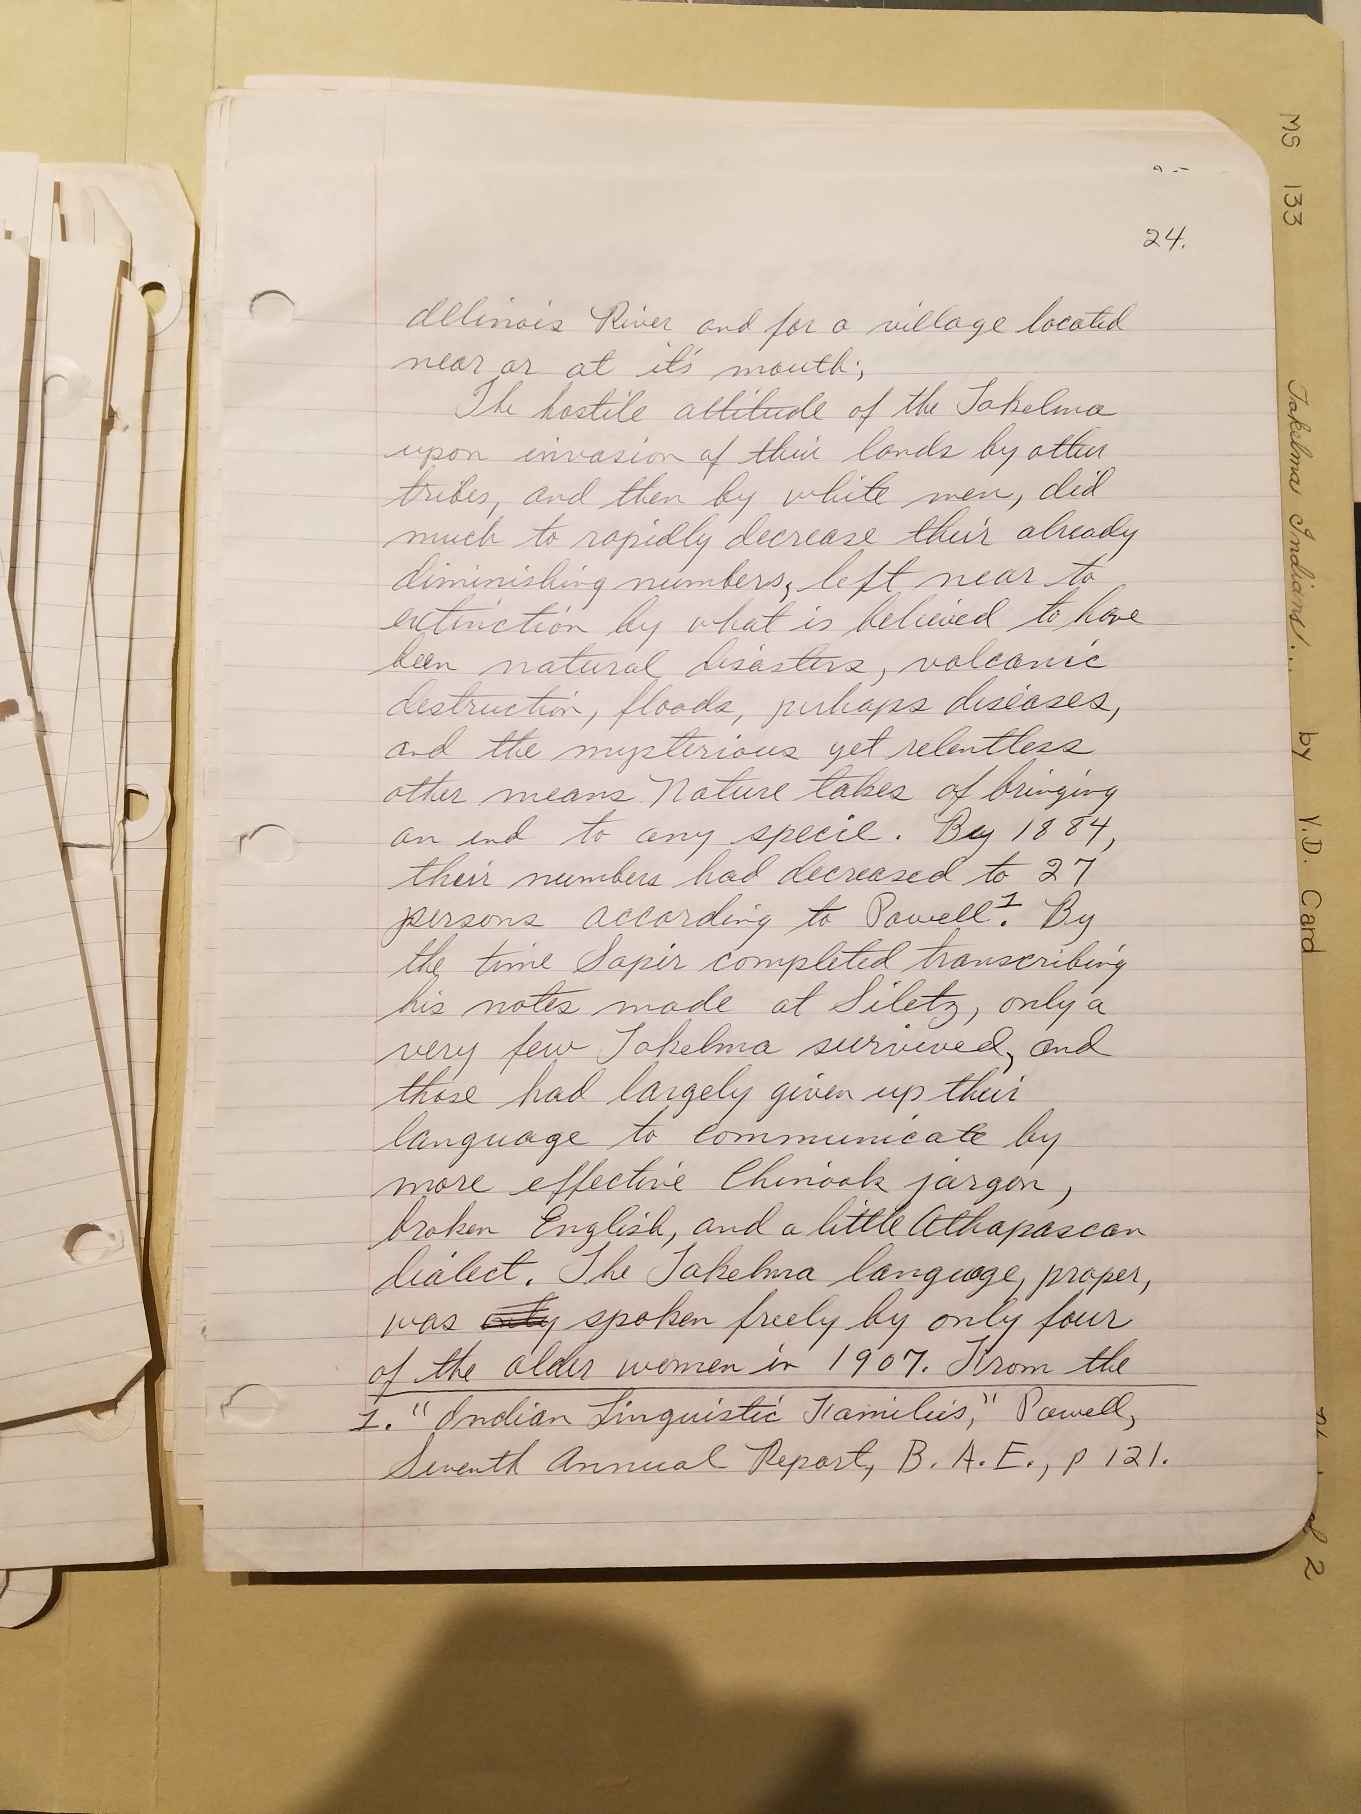 24.
Illinois River and for a village located
near or at it's mouth;
The hostile attitude of the Takelma
upon invasion of their lands by other
tribes, and then by white men, did
much to rapidly decrease their already
diminishing numbers, left near to
extinction by what is believed to have
been natural disasters, volcanic
destruction, floods, perhaps diseases,
and the mysterious yet relentless
other means Nature takes of bringing
an end to any specie. By 1884,
their numbers had decreased to 27
persons according to Powell¹. By
the time Sapir completed transcribing
his notes made at Siletz, only a
very few Takelma survived, and
those had largely given up their
language to communicate by
more effective Chinook jargon,
broken English, and a little Athapascan
dialect. The Takelma language, proper,
was only spoken freely by only four
of the older women in 1907. From the
1. "Indian Linguistic Families," Powell,
Seventh Annual Report, B. A. E., p 121.
MS 133 Takelma Indians!... by Y.D. Card
2